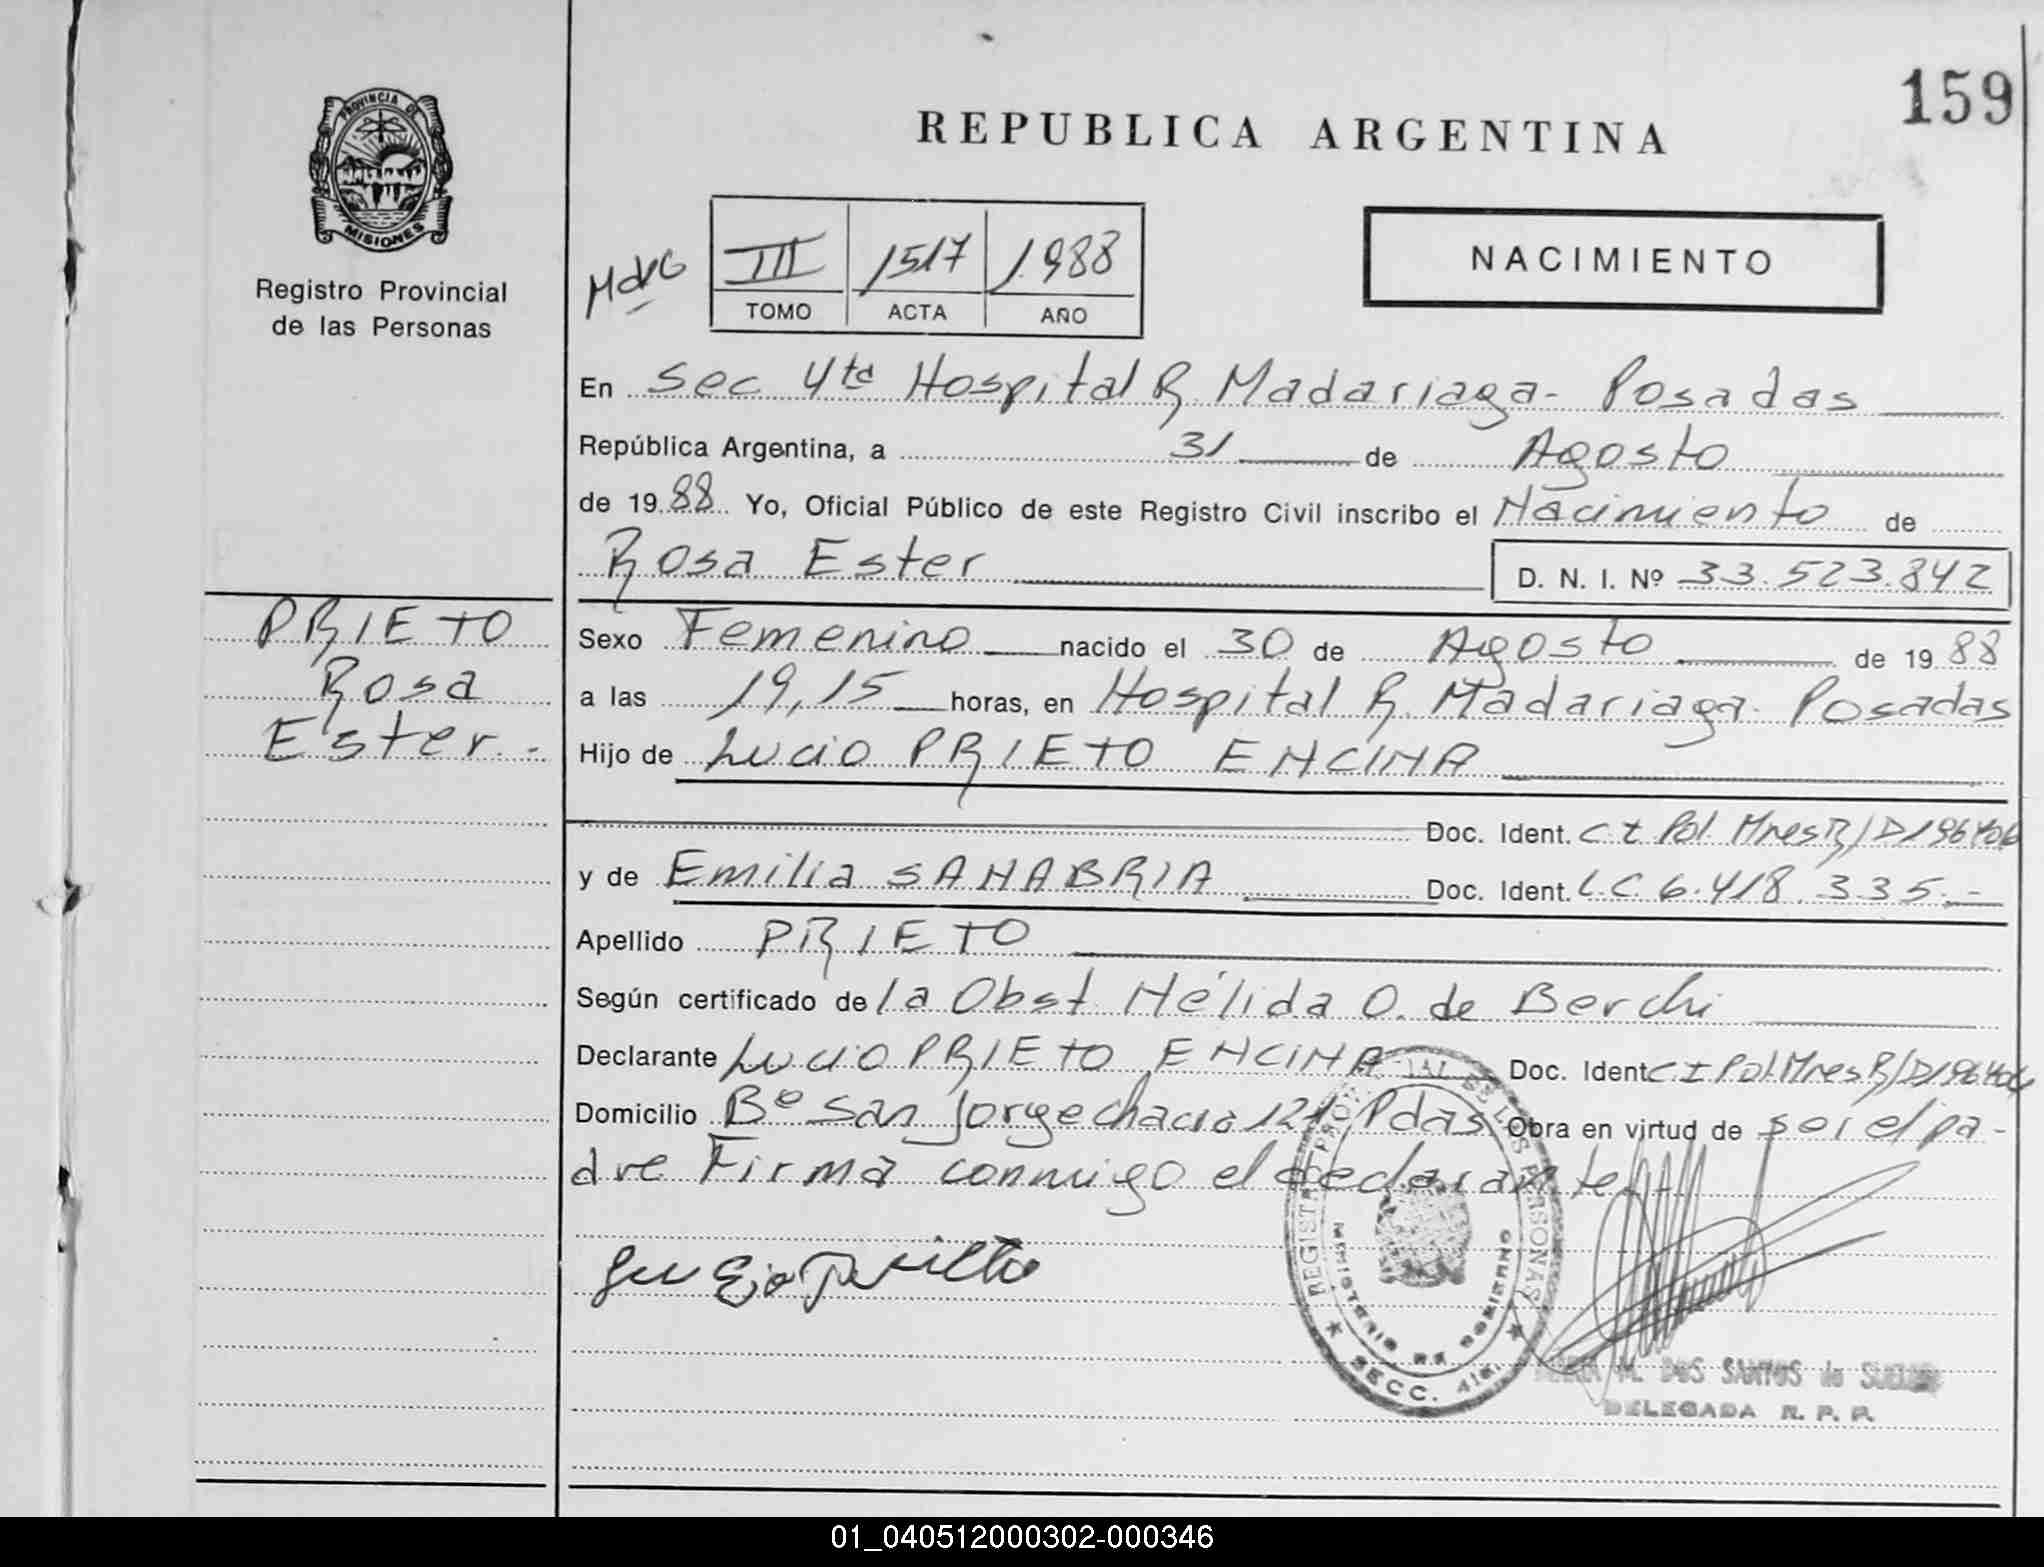 159
PROVINCIA DE
MISIONES
Registro Provincial
de las Personas
REPUBLICA ARGENTINA
NACIMIENTO
III 1517 1988
TOMO ACTA AÑO
En Sec 4ta Hospital R. Madariaga - Posadas
República Argentina, a 31 de Agosto
de 1988 Yo, Oficial Público de este Registro Civil inscribo el Nacimiento de
Rosa Ester D. N. I. Nº 33.523.842
PRIETO
Rosa
Ester.-
Sexo Femenino nacido el 30 de Agosto de 1988
a las 19,15 horas, en Hospital R. Madariaga - Posadas
Hijo de Lucio PRIETO ENCINA
Doc. Ident. C.I. Pol. Mnes R/D196406
y de Emilia SANABRIA Doc. Ident. L.C. 6.418.335.-
Apellido PRIETO
Según certificado de la Obst Nélida O. de Berchi
Declarante Lucio PRIETO ENCINA Doc. Ident C I Pol. Mnes R/D196406
Domicilio Bº San Jorge chacra 121 Pdas Obra en virtud de ser el pa-
dre Firma conmigo el declarante
REGISTRO PROVINCIAL DE LAS PERSONAS
MINISTERIO DE GOBIERNO
SECC. 4ta.
M. DOS SANTOS de
DELEGADA R. P. P.
01_040512000302-000346